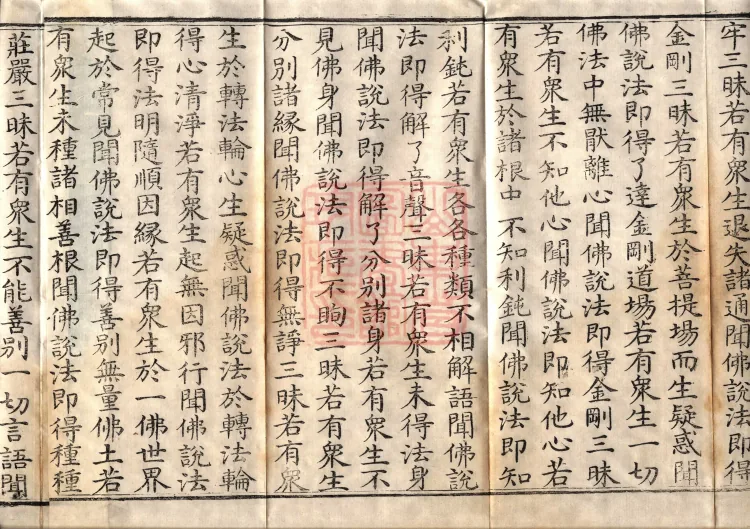 牢三昧若有衆生退失諸通聞佛說法即得
金剛三昧若有衆生於菩提場而生疑惑聞
佛說法即得了達金剛道場若有衆生一切
佛法中無厭離心聞佛說法即得金剛三昧
若有衆生不知他心聞佛說法即知他心若
有衆生於諸根中不知利鈍聞佛說法即知
利鈍若有衆生各各種類不相解語聞佛說
法即得解了音聲三昧若有衆生未得法身
聞佛說法即得解了分別諸身若有衆生不
見佛身聞佛說法即得不眴三昧若有衆生
分別諸緣聞佛說法即得無諍三昧若有衆
生於轉法輪心生疑惑聞佛說法於轉法輪
得心清淨若有衆生起無因邪行聞佛說法
即得法明隨順因緣若有衆生於一佛世界
起於常見聞佛說法即得善別無量佛土若
有衆生未種諸相善根聞佛說法即得種種
莊嚴三昧若有衆生不能善別一切言語聞